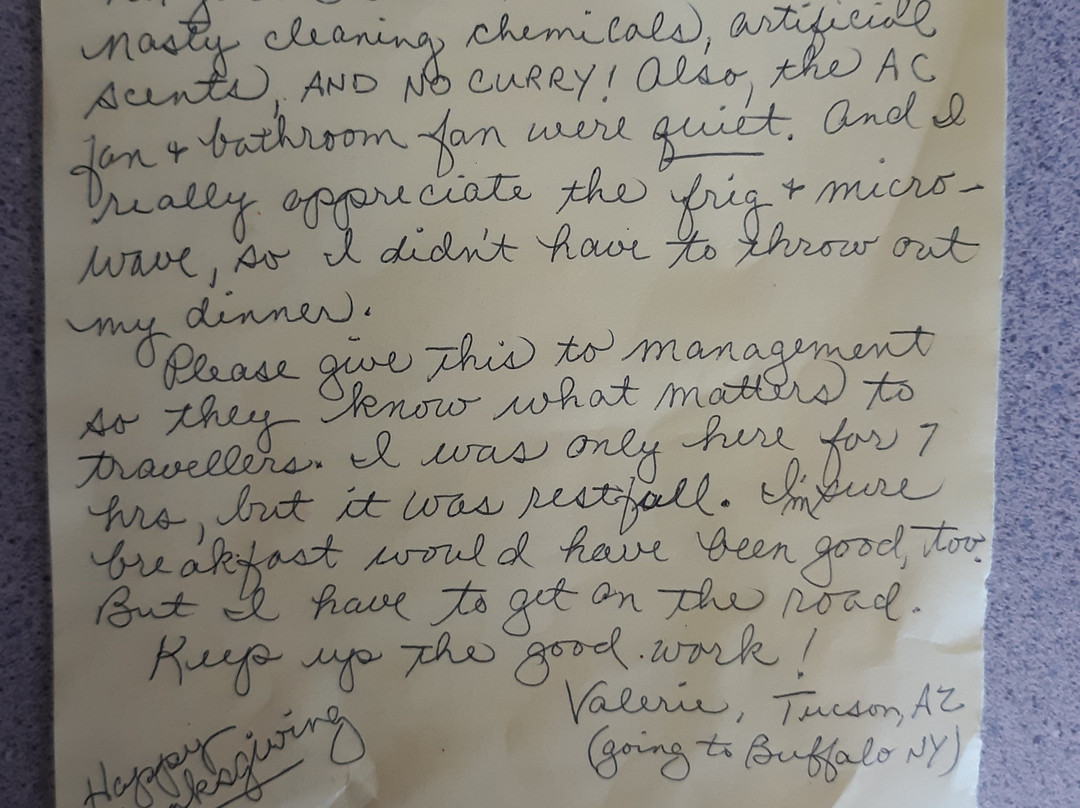 nasty cleaning chemicals, artificial
scents, AND NO CURRY! Also, the AC
fan + bathroom fan were quiet. And I
really appreciate the frig + micro-
wave, so I didn't have to throw out
my dinner.
Please give this to management
so they know what matters to
travellers. I was only here for 7
hrs, but it was restfull. I'm sure
breakfast would have been good, too.
But I have to get on the road.
Keep up the good work!
Valerie, Tucson, AZ
(going to Buffalo NY)
Happy
aksgiving